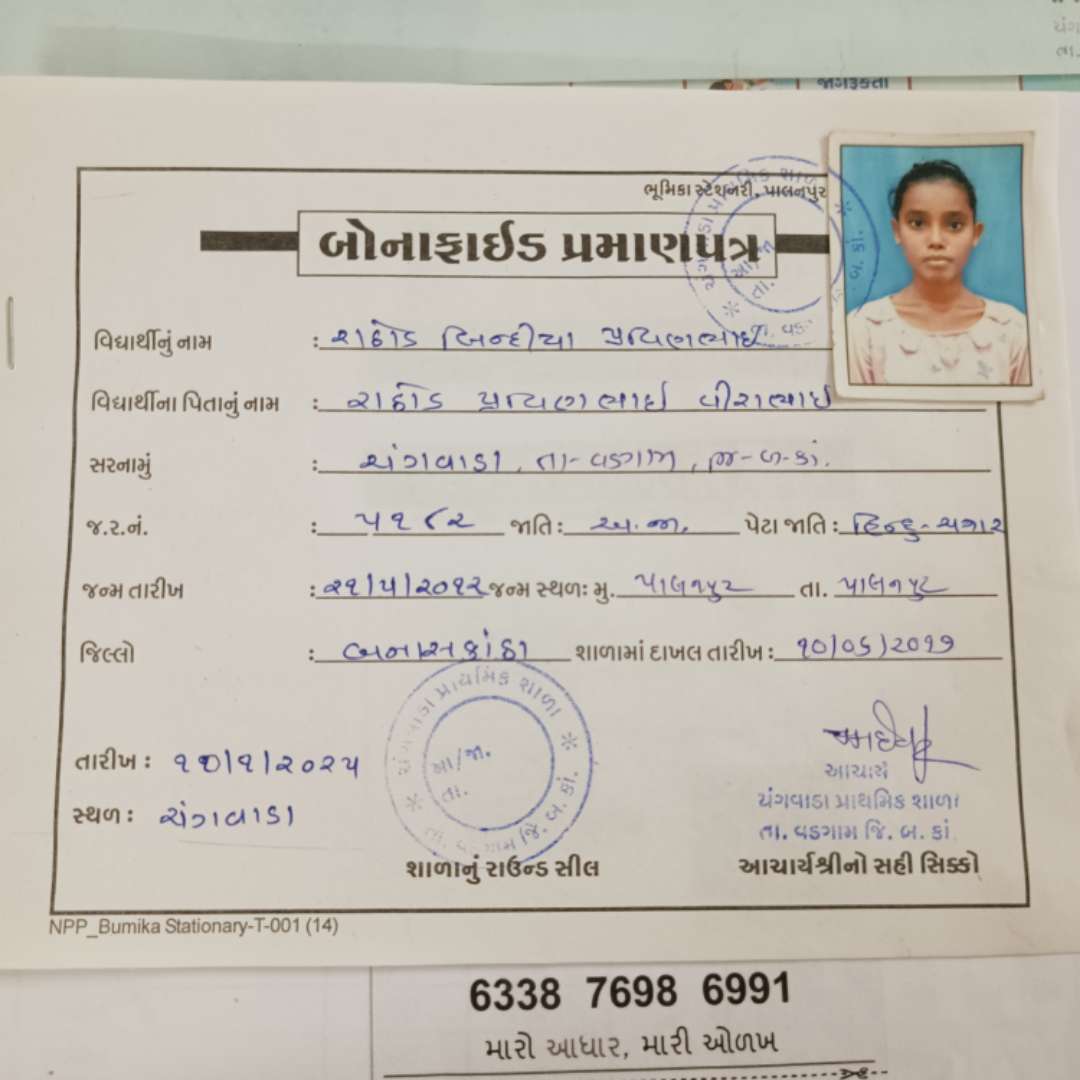 યંગ
તા.
જાગરૂકતા
ભૂમિકા સ્ટેશનરી, પાલનપુર
બોનાફાઈડ પ્રમાણપત્ર
વિદ્યાર્થીનું નામ : રાઠોડ બિન્દીયા પ્રવિણભાઈ
વિદ્યાર્થીના પિતાનું નામ : રાઠોડ પ્રવિણભાઈ વીરાભાઈ
સરનામું : ચંગવાડા, તા-વડગામ, જિ-બ.કાં.
જ.ર.નં. : ૫૧૮૨ જાતિ : અ.જા. પેટા જાતિ : હિન્દુ-ચમાર
જન્મ તારીખ : ૨૧/૫/૨૦૧૨ જન્મ સ્થળઃ મુ. પાલનપુર તા. પાલનપુર
જિલ્લો : બનાસકાંઠા શાળામાં દાખલ તારીખ : ૧૦/૦૬/૨૦૧૭
ચંગવાડા પ્રાથમિક શાળા
તા. વડગામ જિ. બ. કાં.
તારીખ : ૧૭/૧/૨૦૨૫
સ્થળ : ચંગવાડા
આચાર્ય
ચંગવાડા પ્રાથમિક શાળા
તા. વડગામ જિ. બ. કાં.
શાળાનું રાઉન્ડ સીલ
આચાર્યશ્રીનો સહી સિક્કો
NPP_Bumika Stationary-T-001 (14)
6338 7698 6991
મારો આધાર, મારી ઓળખ